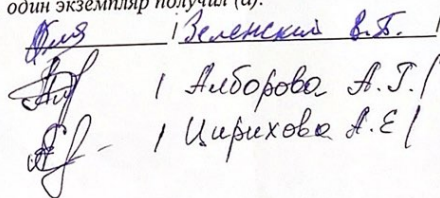 один экземпляр получил (а):
/ Зеленский В.Б. /
/ Алборова А.Г. /
/ Цирихова А.Е /